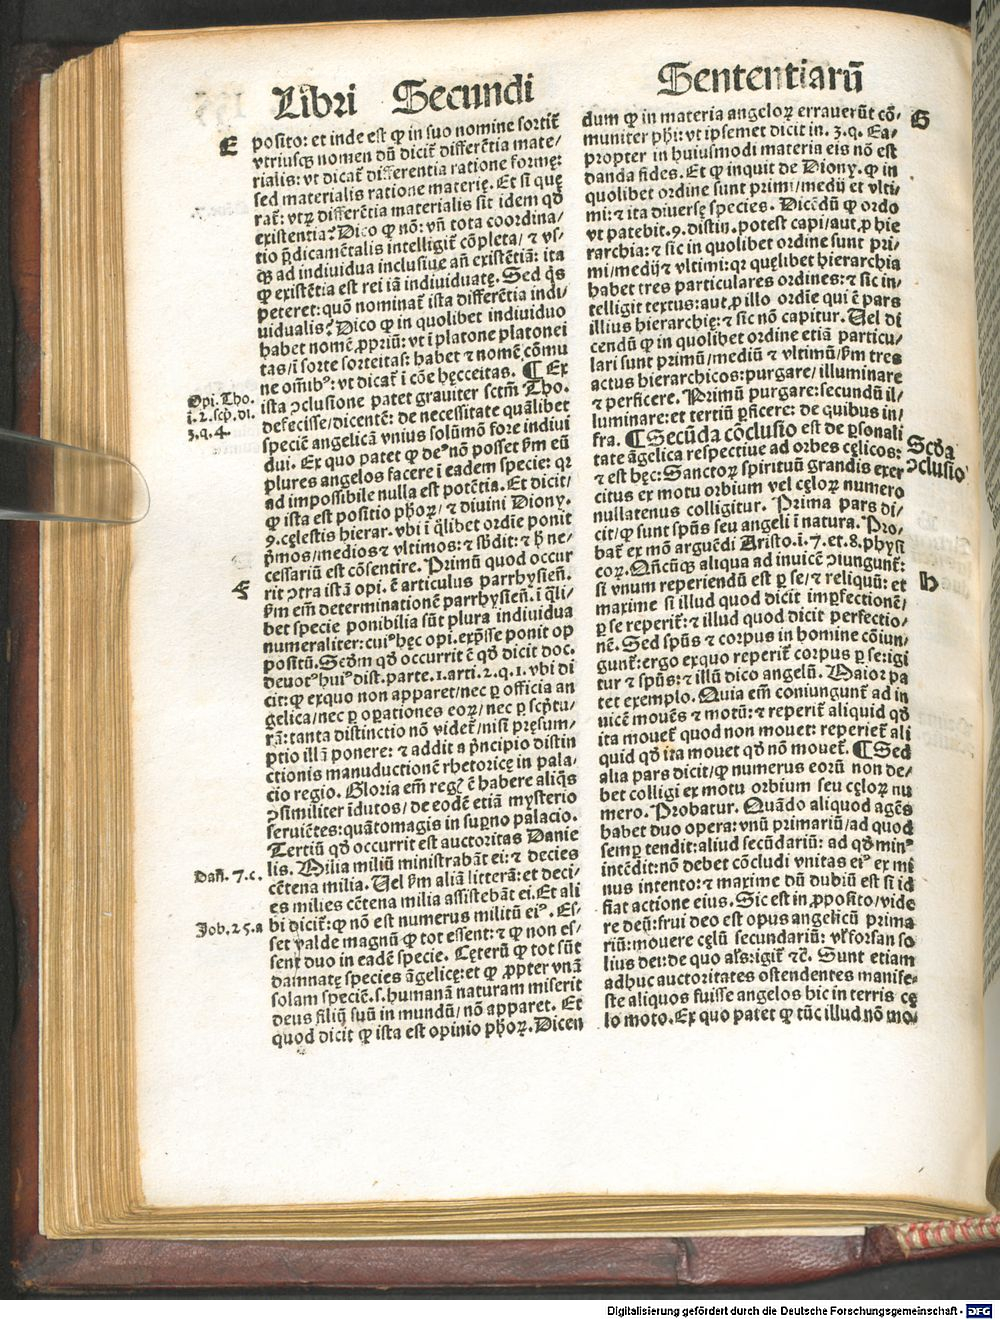 Libri Secundi
Sententiarū
E
posito: et inde est ꝙ in suo nomine sortit̄
vtriusqꝫ nomen dū dicit̄ differētia mate/
rialis: vt dicat̄ differentia ratione formę:
sed materialis ratione materię. Et si quę
rat̄: vtꝝ differētia materialis sit idem qd̄
existentia? Dico ꝙ nō: vn̄ tota coordina/
tio p̄dicamētalis intelligit̄ cōpleta/ ⁊ vs/
qꝫ ad indiuidua inclusiue an̄ existētiā: ita
ꝙ existētia est rei iā indiuiduatę. Sed q̄s
peteret: quō nominat̄ ista differētia indi/
uidualis? Dico ꝙ in quolibet indiuiduo
habet nomē ꝓpriū: vt ī platone platonei
tas/ ī sorte sorteitas: habet ⁊ nomē cōmu
ne om̄ibꝰ: vt dicat̄ ī cōe hęcceitas. ¶ Ex
ista ↄclusione patet grauiter sctm̄ Tho.
defecisse/ dicentē: de necessitate quālibet
speciē angelicā vnius solūmō fore indiui
dui. Ex quo patet ꝙ deꝰ nō posset ẜm eū
plures angelos facere ī eadem specie: qꝛ
ad impossibile nulla est potētia. Et dicit/
ꝙ ista est positio ph̄oꝝ/ ⁊ diuini Diony.
9. cęlestis hierar. vbi ī q̄libet ordīe ponit
p̄mos/ medios ⁊ vltimos: ⁊ sb̄dit: ⁊ h̄ ne/
cessariū est cōsentire. Primū quod occur
rit ↄtra istā opi. ē articulus parrhysień.
ẜm em̄ determinationē parrhysień. ī q̄li/
bet specie ponibilia sūt plura indiuidua
numeraliter: cuiꝰ hęc opi. exp̄sse ponit op
positū. Scd̄m qd̄ occurrit ē qd̄ dicit doc.
deuotꝰ huiꝰ dist. parte. 1. arti. 2. q. 1. vbi di
cit: ꝙ exquo non apparet/ nec ꝑ officia an
gelica/ nec ꝑ oꝑationes eoꝝ/ nec ꝑ scp̄tu/
rā: tanta distinctio nō videt̄/ nisi pręsum/
ptio illā ponere: ⁊ addit a p̄ncipio distin
ctionis manuductionē rhetoricę in pala/
cio regio. Gloria em̄ regꝭ ē habere aliq̄s
ↄsimiliter īdutos/ de eodē etiā mysterio
seruiētes: quātomagis in suꝑno palacio.
Tertiū qd̄ occurrit est auctoritas Danie
lis. Milia miliū ministrabāt ei: ⁊ decies
cētena milia. Uel ẜm aliā litterā: et deci/
es milies cētena milia assistebāt ei. Et ali
bi dicit̄: ꝙ nō est numerus militū eiꝰ. Es/
set valde magnū ꝙ tot essent: ⁊ ꝙ non es/
sent duo in eadē specie. Cęterū ꝙ tot sūt
damnatę species āgelicę: et ꝙ ꝓpter vnā
solam speciē. s. humanā naturam miserit
deus filiū suū in mundū/ nō apparet. Et
quod dicit ꝙ ista est opinio ph̄oꝝ. Dicen
Opi. Tho.
i. 2. scp̄. di.
3. q. 4.
F
Dań. 7. c.
Job. 25. a
dum ꝙ in materia angeloꝝ errauerūt cō/
muniter ph̄i: vt ipsemet dicit in. 3. q. Ea/
propter in huiusmodi materia eis nō est
danda fides. Et ꝙ inquit de Diony. ꝙ in
quolibet ordine sunt primi/ medij et vlti/
mi: ⁊ ita diuersę species. Dicēdū ꝙ ordo
vt patebit. 9. distin. potest capi/ aut ꝓ hie
rarchia: ⁊ sic in quolibet ordine sunt pri/
mi/ medij ⁊ vltimi: qꝛ quęlibet hierarchia
habet tres particulares ordines: ⁊ sic in/
telligit textus: aut ꝓ illo ordīe qui ē pars
illius hierarchię: ⁊ sic nō capitur. Uel di
cendū ꝙ in quolibet ordine etiā particu/
lari sunt primū/ mediū ⁊ vltimū/ ẜm tres
actus hierarchicos: purgare/ illuminare
⁊ perficere. Primū purgare: secundū il/
luminare: et tertiū ꝑficere: de quibus in/
fra. ¶ Secūda cōclusio est de ꝑsonali
tate āgelica respectiue ad orbes cęlicos:
⁊ est hęc: Sanctoꝝ spirituū grandis exer
citus ex motu orbium vel cęloꝝ numero
nullatenus colligitur. Prima pars di/
cit/ ꝙ sunt spūs seu angeli ī natura. Pro/
bat̄ ex mō arguēdi Aristo. ī. 7. et. 8. physi
coꝝ. Qn̄cūqꝫ aliqua ad inuicē ↄiungunt̄:
si vnum reperiendū est ꝑ se/ ⁊ reliquū: et
maxime si illud quod dicit imꝑfectionē/
ꝑ se reperit̄: ⁊ illud quod dicit perfectio/
nē. Sed spūs ⁊ corpus in homine cōiun/
gunt̄: ergo exquo reperit̄ corpus ꝑ se: igi
tur ⁊ spūs: ⁊ illū dico angelū. Maior pa
tet exemplo. Quia em̄ coniungunt̄ ad in
uicē mouēs ⁊ motū: ⁊ reperit̄ aliquid qd̄
ita mouet̄ quod non mouet: reperiet̄ ali
quid qd̄ ita mouet qd̄ nō mouet̄. ¶ Sed
alia pars dicit/ ꝙ numerus eorū non de/
bet colligi ex motu orbium seu cęloꝝ nu
mero. Probatur. Quādo aliquod agēs
habet duo opera: vnū primariū/ ad quod
semꝑ tendit: aliud secūdariū: ad qd̄ minꝰ
intēdit: nō debet cōcludi vnitas eiꝰ ex mi
nus intento: ⁊ maxime dū dubiū est si id
fiat actione eius. Sic est in ꝓposito/ vide
re deū: frui deo est opus angelicū prima
riū: mouere cęlū secundariū: vł forsan so
lius dei: de quo als̄: igit̄ ⁊c̄. Sunt etiam
adhuc auctoritates ostendentes manife/
ste aliquos fuisse angelos hic in terris cę
lo moto. Ex quo patet ꝙ tūc illud nō mo/
G
Scd̄a
ↄclusio
H
Digitalisierung gefördert durch die Deutsche Forschungsgemeinschaft - DFG